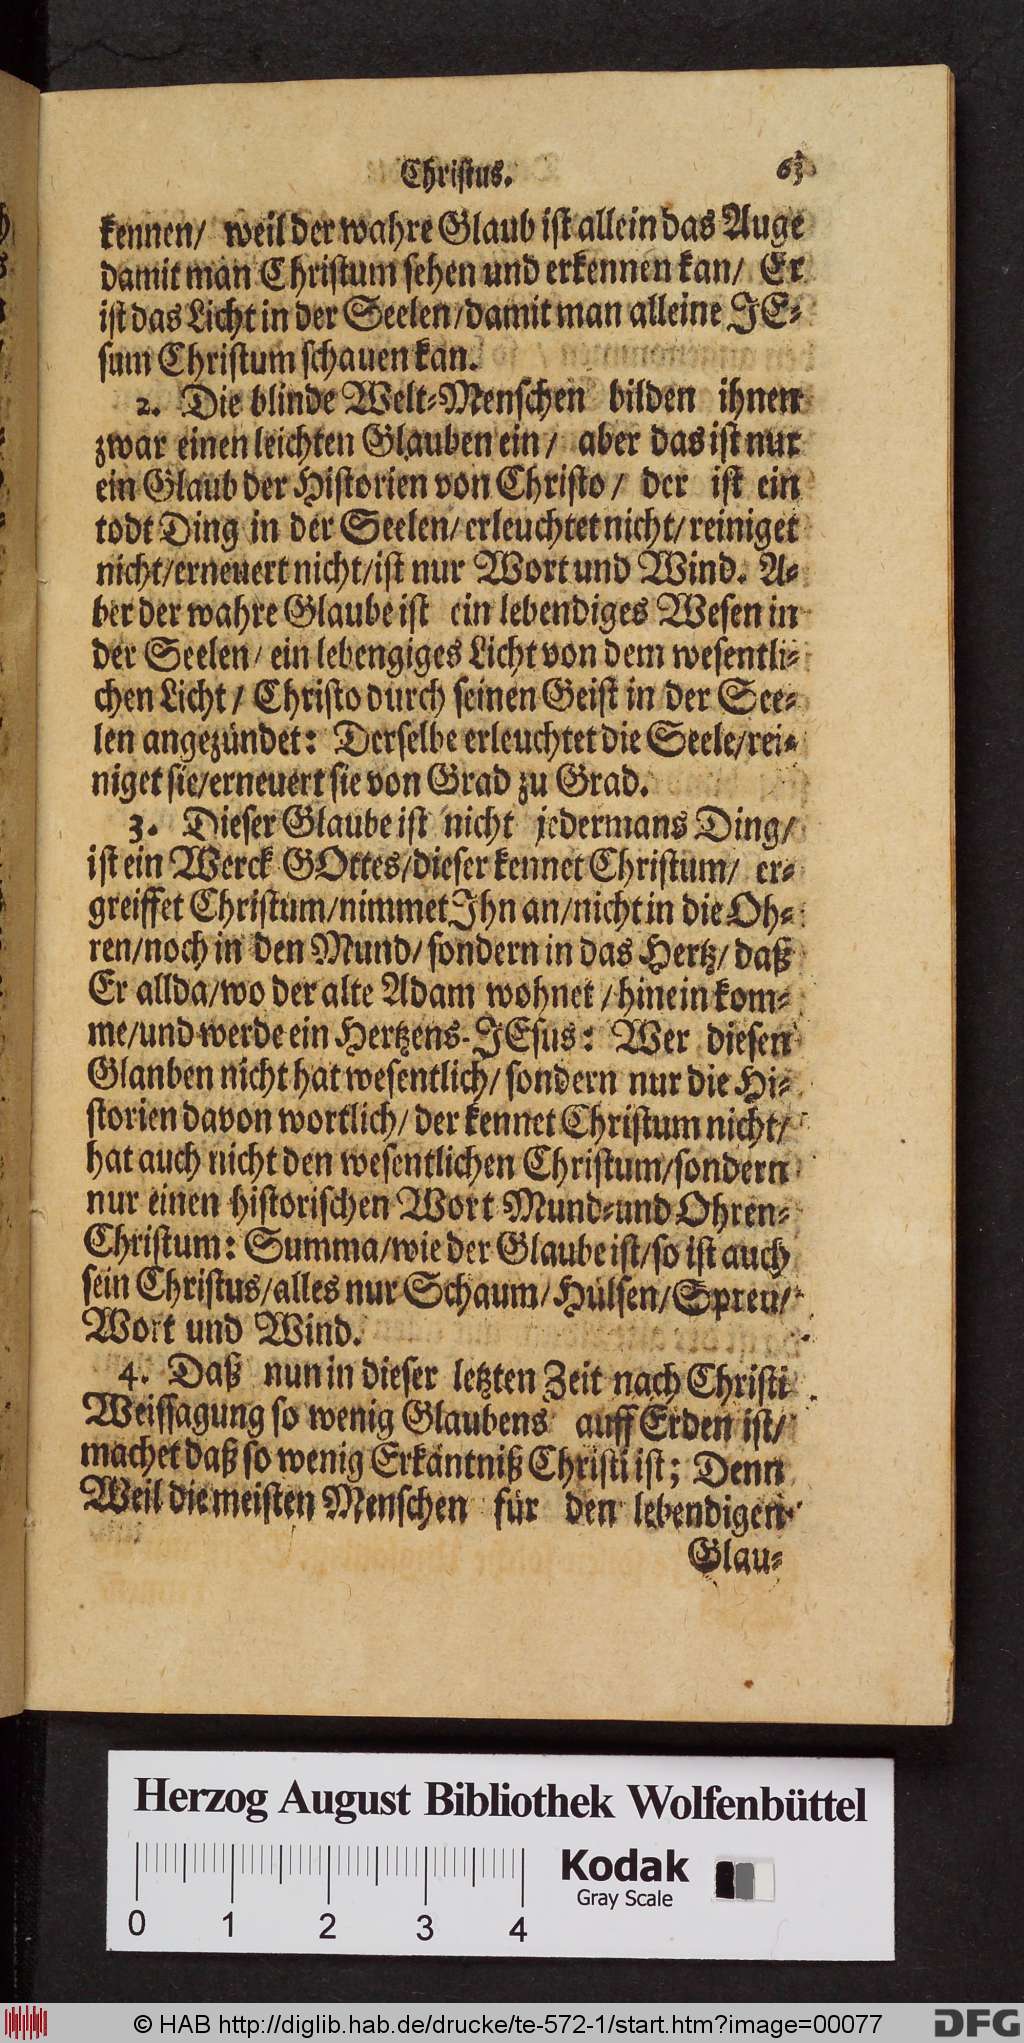 Christus. 63
kennen/ weil der wahre Glaub ist allein das Auge
damit man Christum sehen und erkennen kan/ Er
ist das Licht in der Seelen/damit man alleine JE-
sum Christum schauen kan.
2. Die blinde Welt-Menschen bilden ihnen
zwar einen leichten Glauben ein/ aber das ist nur
ein Glaub der Historien von Christo/ der ist ein
todt Ding in der Seelen/erleuchtet nicht/reiniget
nicht/erneuert nicht/ist nur Wort und Wind. A-
ber der wahre Glaube ist ein lebendiges Wesen in
der Seelen/ein lebengiges Licht von dem wesentli-
chen Licht/ Christo durch seinen Geist in der See-
len angezündet: Derselbe erleuchtet die Seele/rei-
niget sie/erneuert sie von Grad zu Grad.
3. Dieser Glaube ist nicht jedermans Ding/
ist ein Werck GOttes/dieser kennet Christum/ er-
greiffet Christum/nimmet Ihn an/nicht in die Oh-
ren/noch in den Mund/sondern in das Hertz/daß
Er allda/wo der alte Adam wohnet/hinein kom-
me/und werde ein Hertzens-JEsus: Wer diesen
Glanben nicht hat wesentlich/sondern nur die Hi-
storien davon wortlich/der kennet Christum nicht/
hat auch nicht den wesentlichen Christum/sondern
nur einen historischen Wort Mund-und Ohren-
Christum: Summa/wie der Glaube ist/so ist auch
sein Christus/alles nur Schaum/Hülsen/Spreu/
Wort und Wind.
4. Daß nun in dieser letzten Zeit nach Christi
Weissagung so wenig Glaubens auff Erden ist/
machet daß so wenig Erkäntniß Christi ist; Denn
Weil die meisten Menschen für den lebendigen
Glau-
Herzog August Bibliothek Wolfenbüttel
Kodak
Gray Scale
0 1 2 3 4
© HAB http://diglib.hab.de/drucke/te-572-1/start.htm?image=00077
DFG